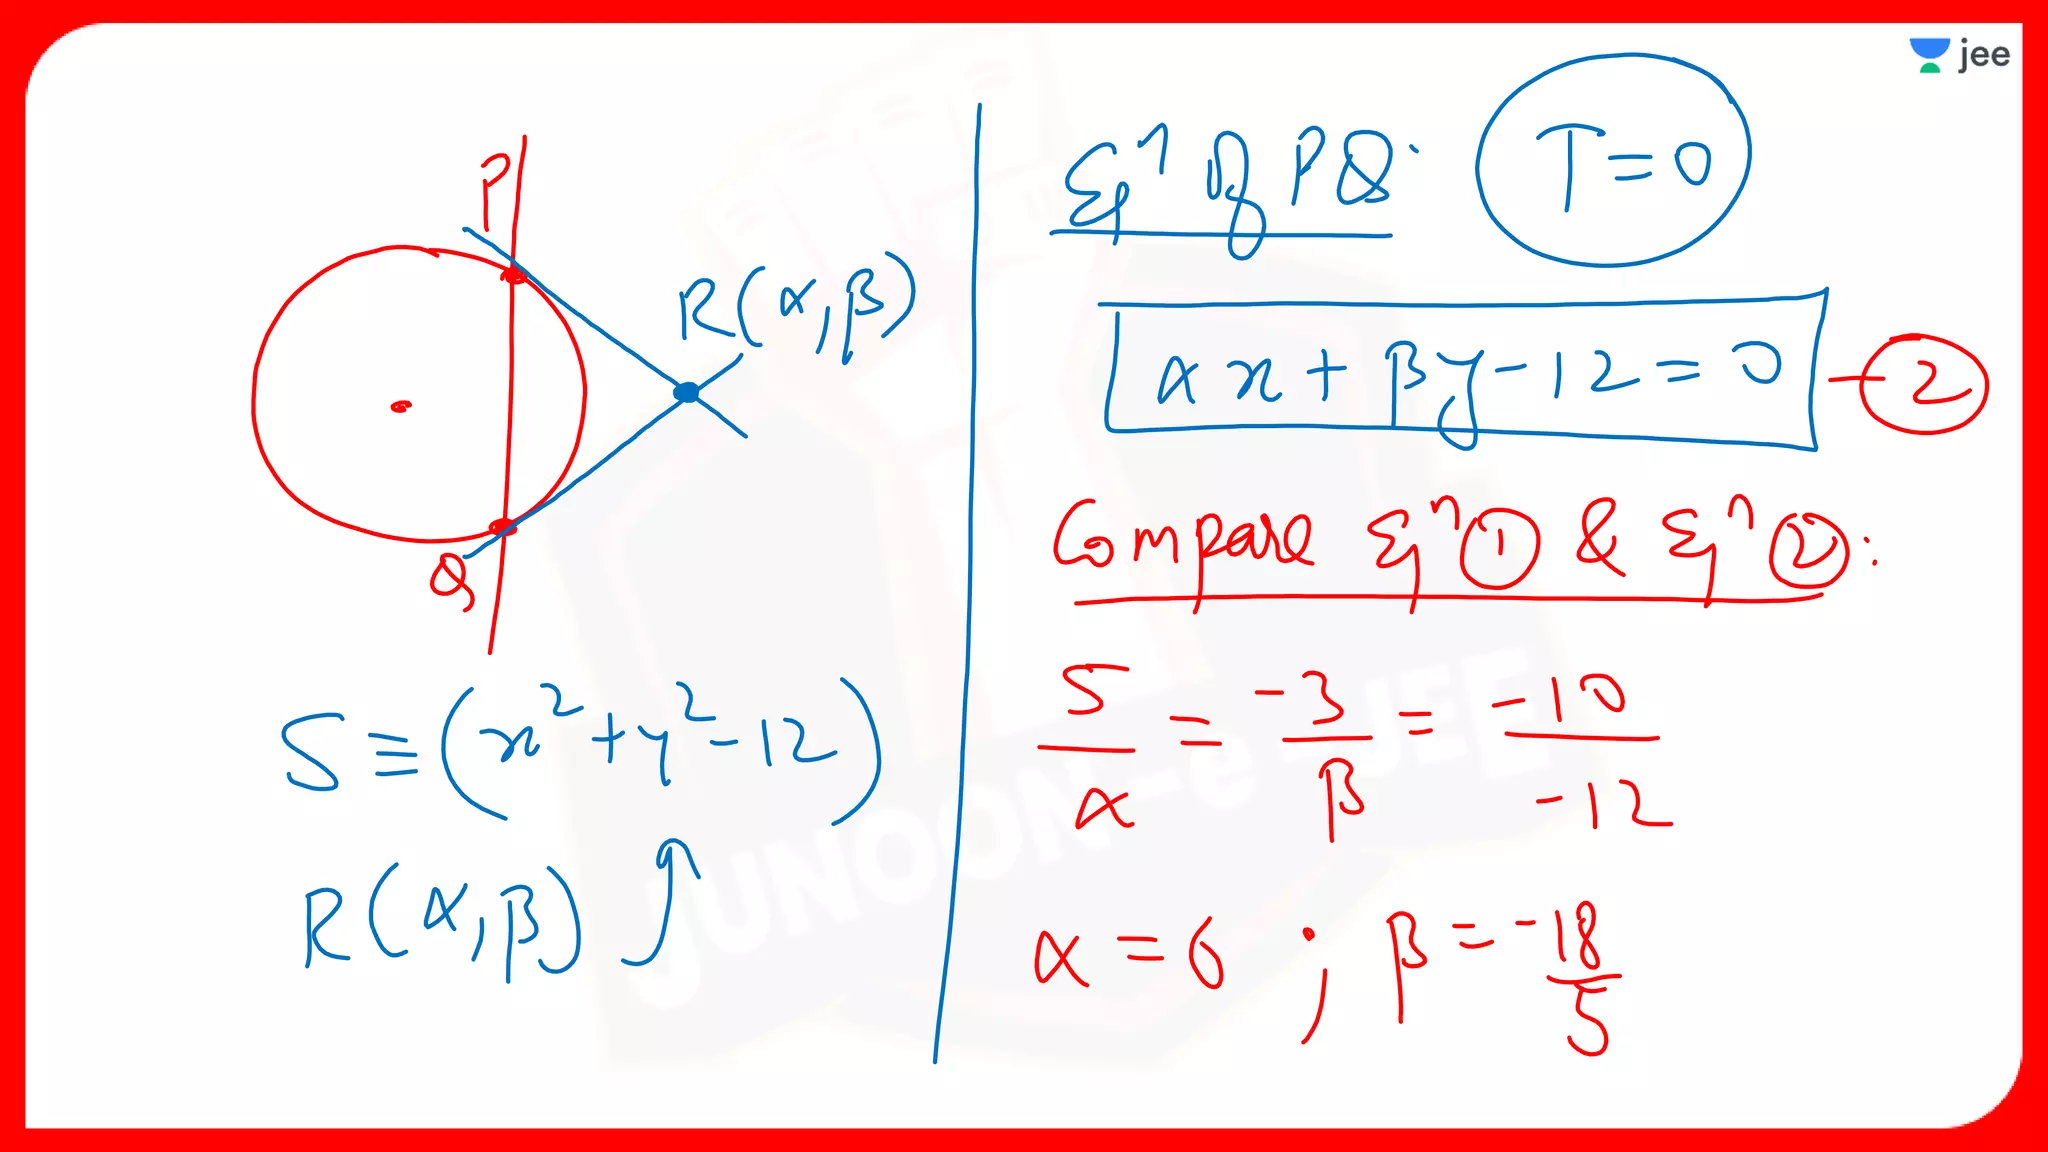 jee
P
R(α,β)
Q
S ≡ (x²+y²-12)
R(α,β)
Eqⁿ Of PQ: T=0
αx+βy-12=0 — ②
Compare Eqⁿ ① & Eqⁿ ② :
5/α = -3/β = -10/-12
α=6 ; β=-18/5
JUNOON-e-JEE